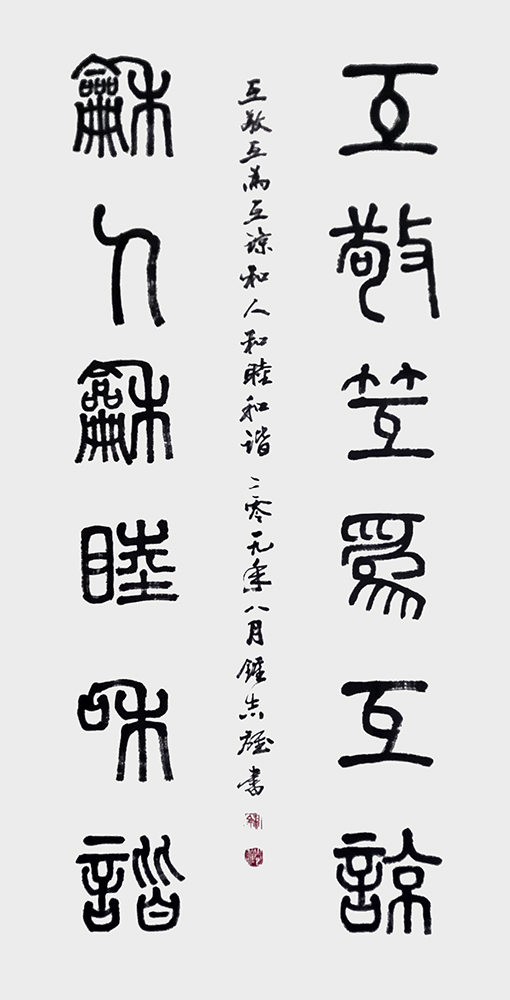 互敬笠為互諒
龢人龢睦和諧
互敬互為互諒和人和睦和谐 二零一九年八月鍾志雄書